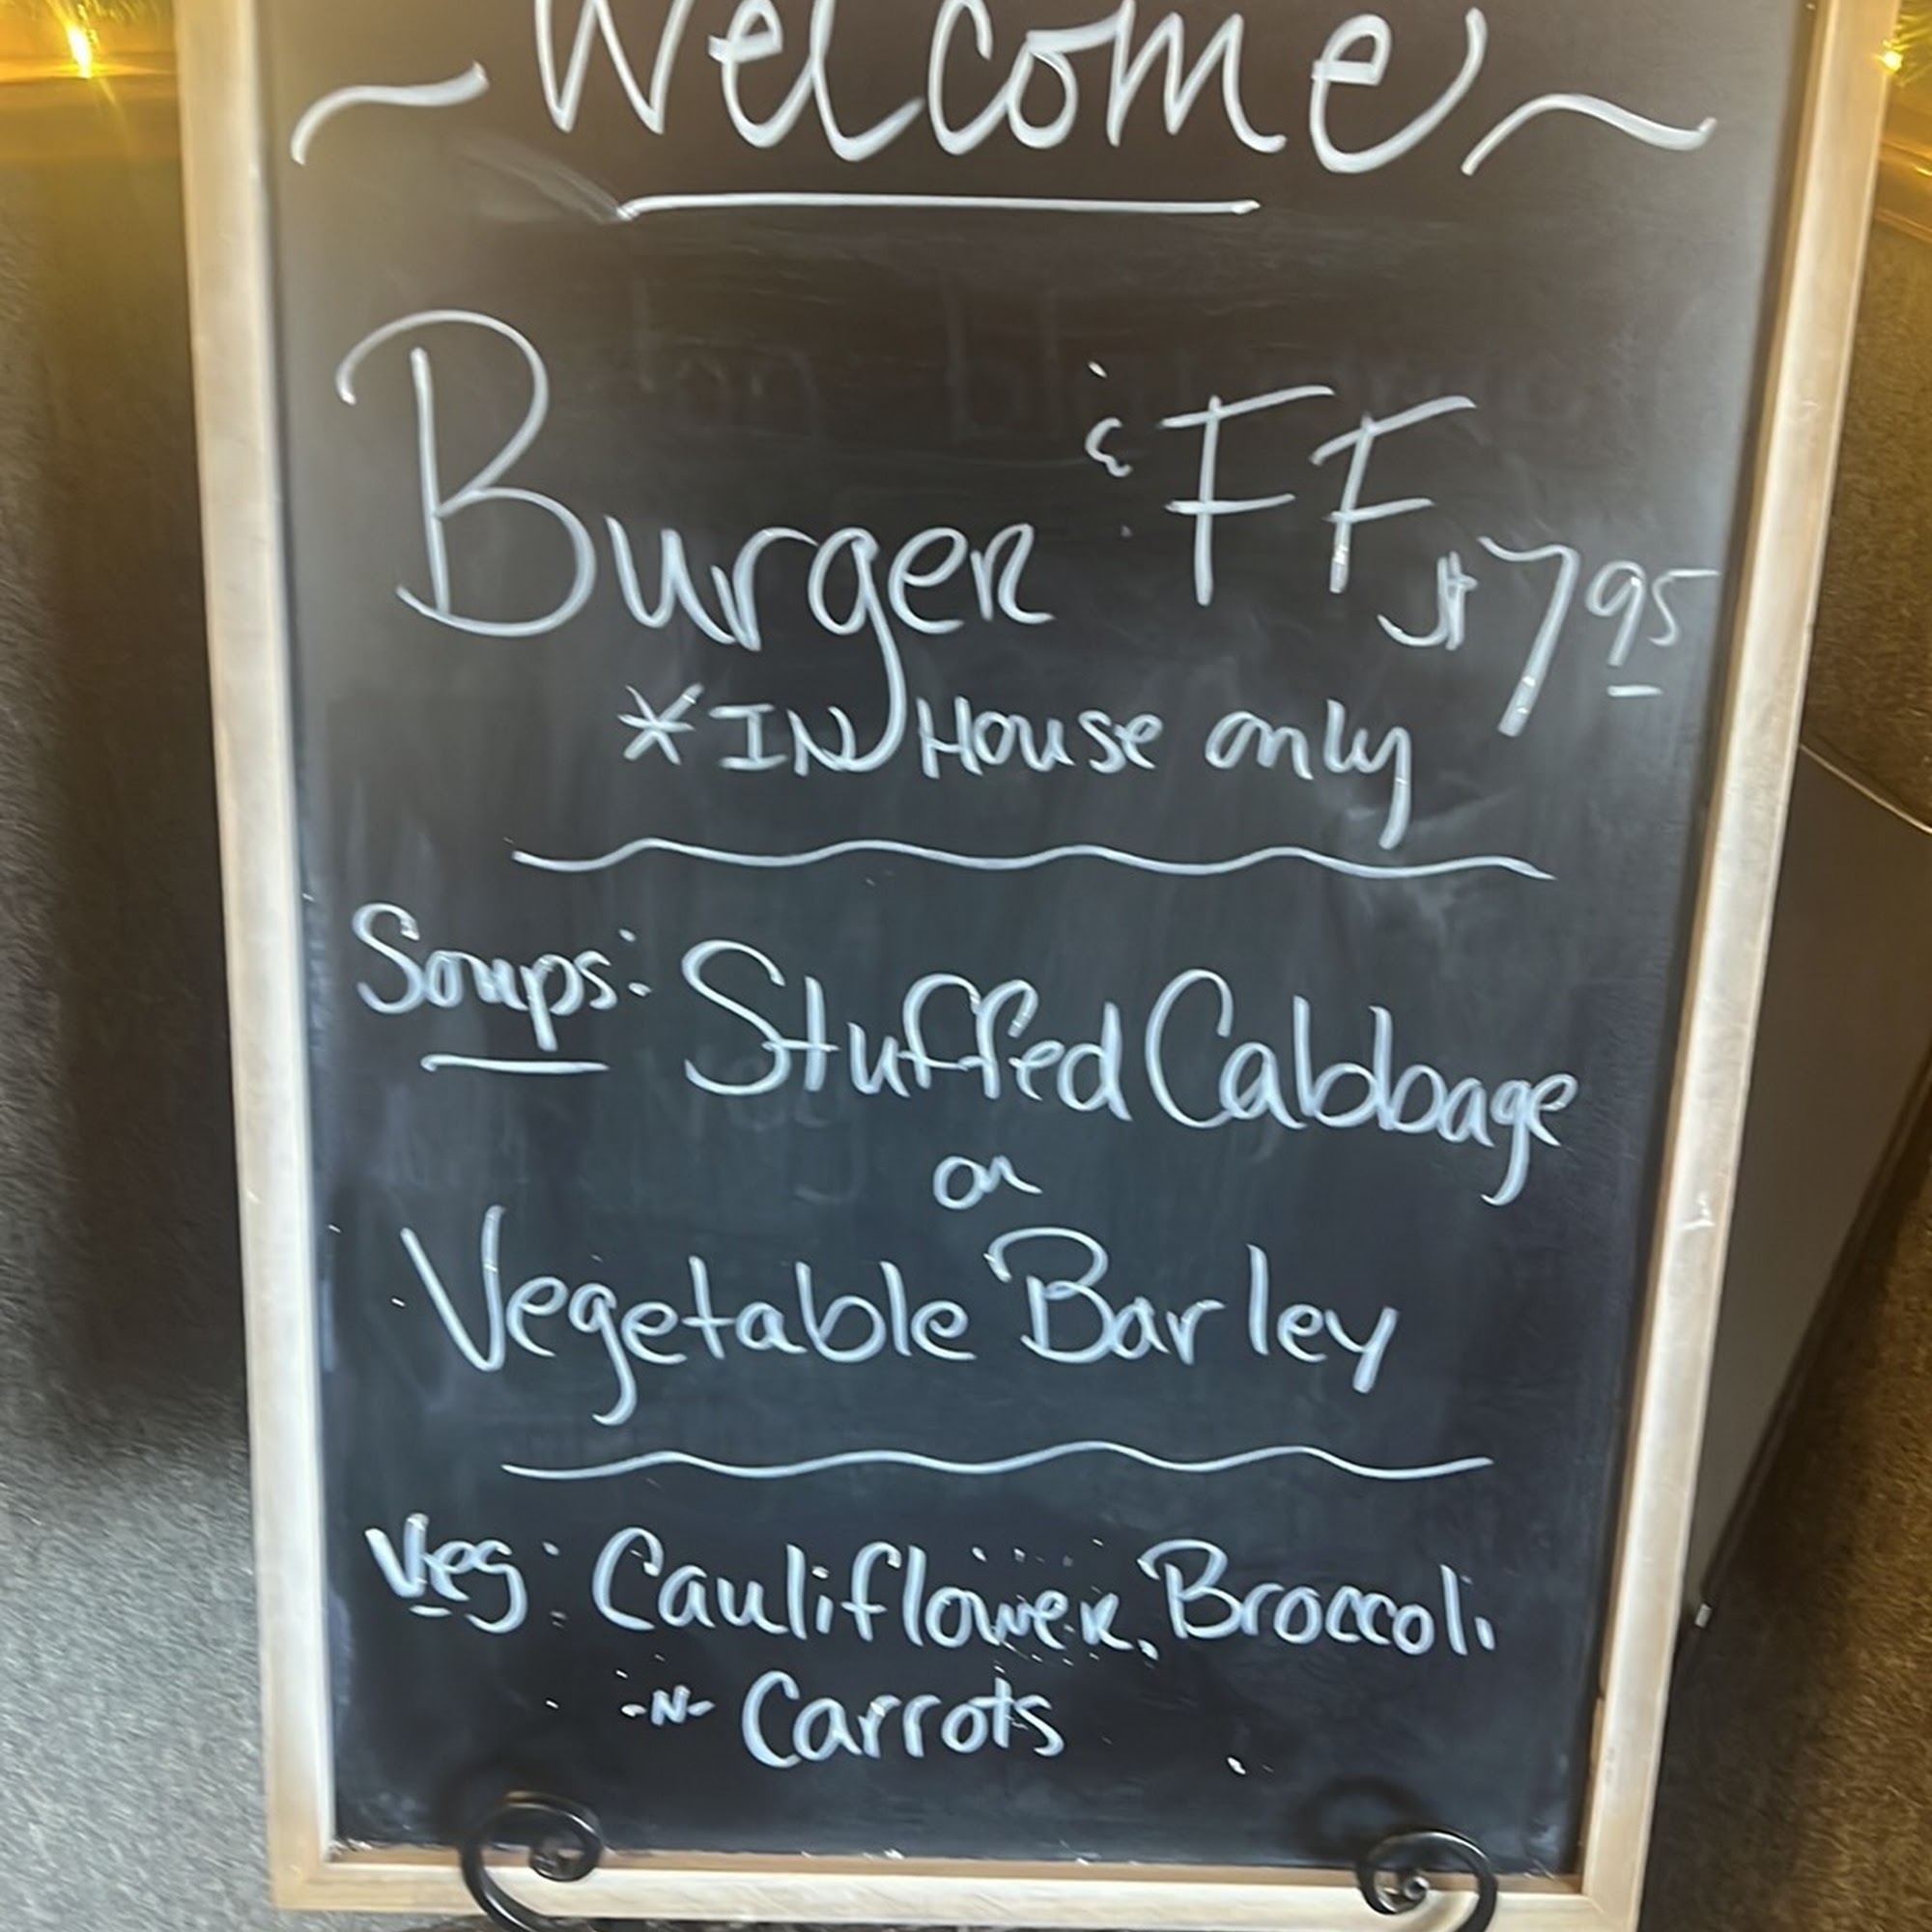 ~ Welcome ~
Burger & FF $7.95
*IN House only
Soups: Stuffed Cabbage
or
Vegetable Barley
Veg: Cauliflower, Broccoli
-N- Carrots